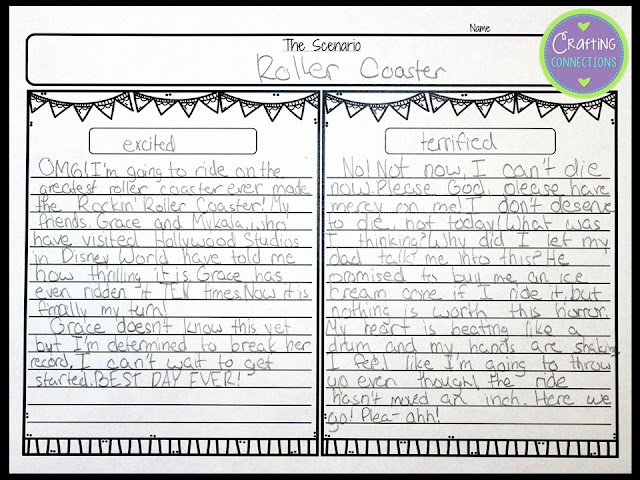 Name
The Scenario
Roller Coaster
CRAFTING
CONNECTIONS
excited
OMG! I'm going to ride on the
greatest roller coaster ever made
the Rockin' Roller Coaster! My
friends, Grace and Mykala, who
have visited Hollywood Studios
in Disney World have told me
how thrilling it is. Grace has
even ridden it TEN times. Now it is
finally my turn!
Grace doesn't know this yet
but I'm determined to break her
record, I can't wait to get
started. BEST DAY EVER!
terrified
No! Not now, I can't die
now. Please God, please have
mercy on me! I don't deserve
to die, not today! What was
I thinking? Why did I let my
dad talk me into this? He
promised to buy me an ice
cream cone if I ride it, but
nothing is worth this horror.
My heart is beating like a
drum and my hands are shaking.
I feel like I'm going to throw
up even though the ride
hasn't moved an inch. Here we
go! Plea-ahh!